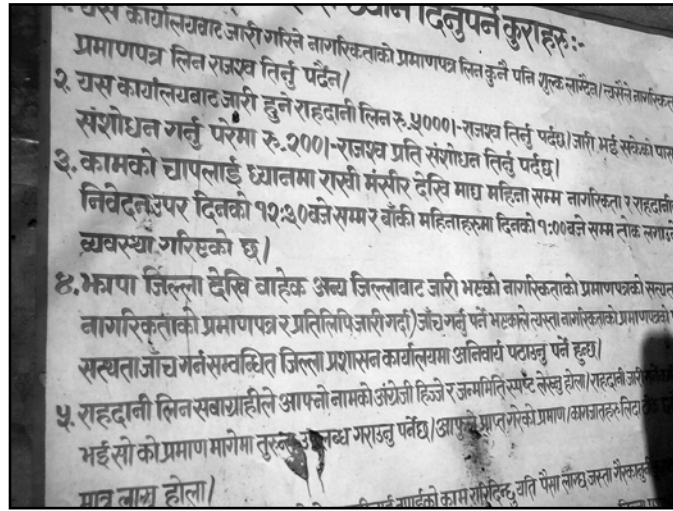 ध्यान दिनुपर्ने कुराहरु :-
१. यस कार्यालयबाट जारी गरिने नागरिकताको प्रमाणपत्र लिन कुनै पनि शुल्क लाग्दैन। त्यसैले नागरिकता
प्रमाणपत्र लिन राजश्व तिर्नु पर्दैन।
२. यस कार्यालयबाट जारी हुने राहदानी लिन रु.५०००।- राजश्व तिर्नु पर्दछ। जारी भई सकेको पास
संशोधन गर्नु परेमा रु.२००।- राजश्व प्रति संशोधन तिर्नु पर्दछ।
३. कामको चापलाई ध्यानमा राखी मंसीर देखि माघ महिना सम्म नागरिकता र राहदानी
निवेदन उपर दिनको १२:३० बजे सम्म र बाँकी महिनाहरुमा दिनको १:०० बजे सम्म तोक लगाउने
व्यवस्था गरिएको छ।
४. झापा जिल्ला देखि वाहेक अन्य जिल्लावाट जारी भएको नागरिकताको प्रमाणपत्रको सत्यता
नागरिकताको प्रमाणपत्र र प्रतिलिपि जारी गर्दा) जाँच गर्नु पर्ने भएकोले त्यस्ता नागरिकताको प्रमाणपत्रको
सत्यता जाँच गर्न सम्बन्धित जिल्ला प्रशासन कार्यालयमा अनिवार्य पठाउनु पर्ने हुन्छ।
५. राहदानी लिन सेवाग्राहीले आफ्नो नामको अंग्रेजी हिज्जे र जन्ममिति स्पष्ट लेख्नु होला। राहदानी जारी
भई सो को प्रमाण मागेमा तुरुन्त उपलब्ध गराउनु पर्नेछ। आफुले प्राप्त गरेको प्रमाण/कागजातहरु लिदा
मात्र लाग्नु होला।
काम गरिदिन्छु यति पैसा लाग्छ जस्ता गैरकानुनी